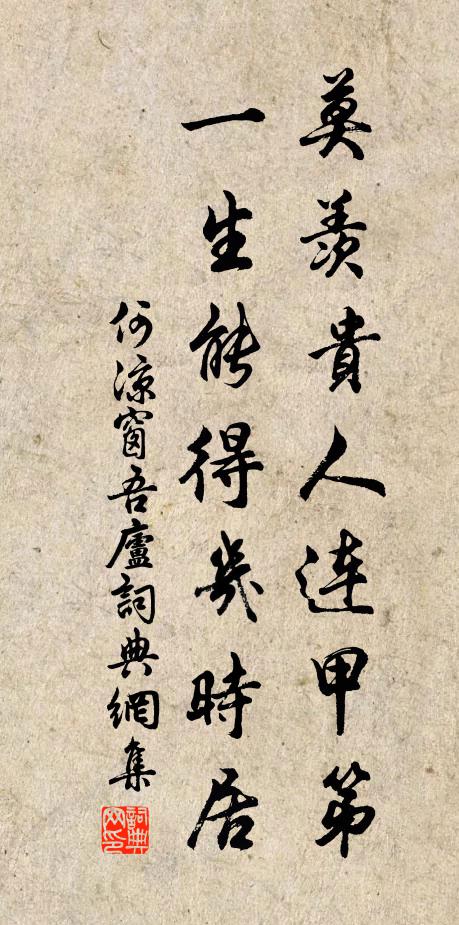 莫羨貴人連甲第
一生能得幾時居
何涼窗吾廬詞典網集
詞典網印